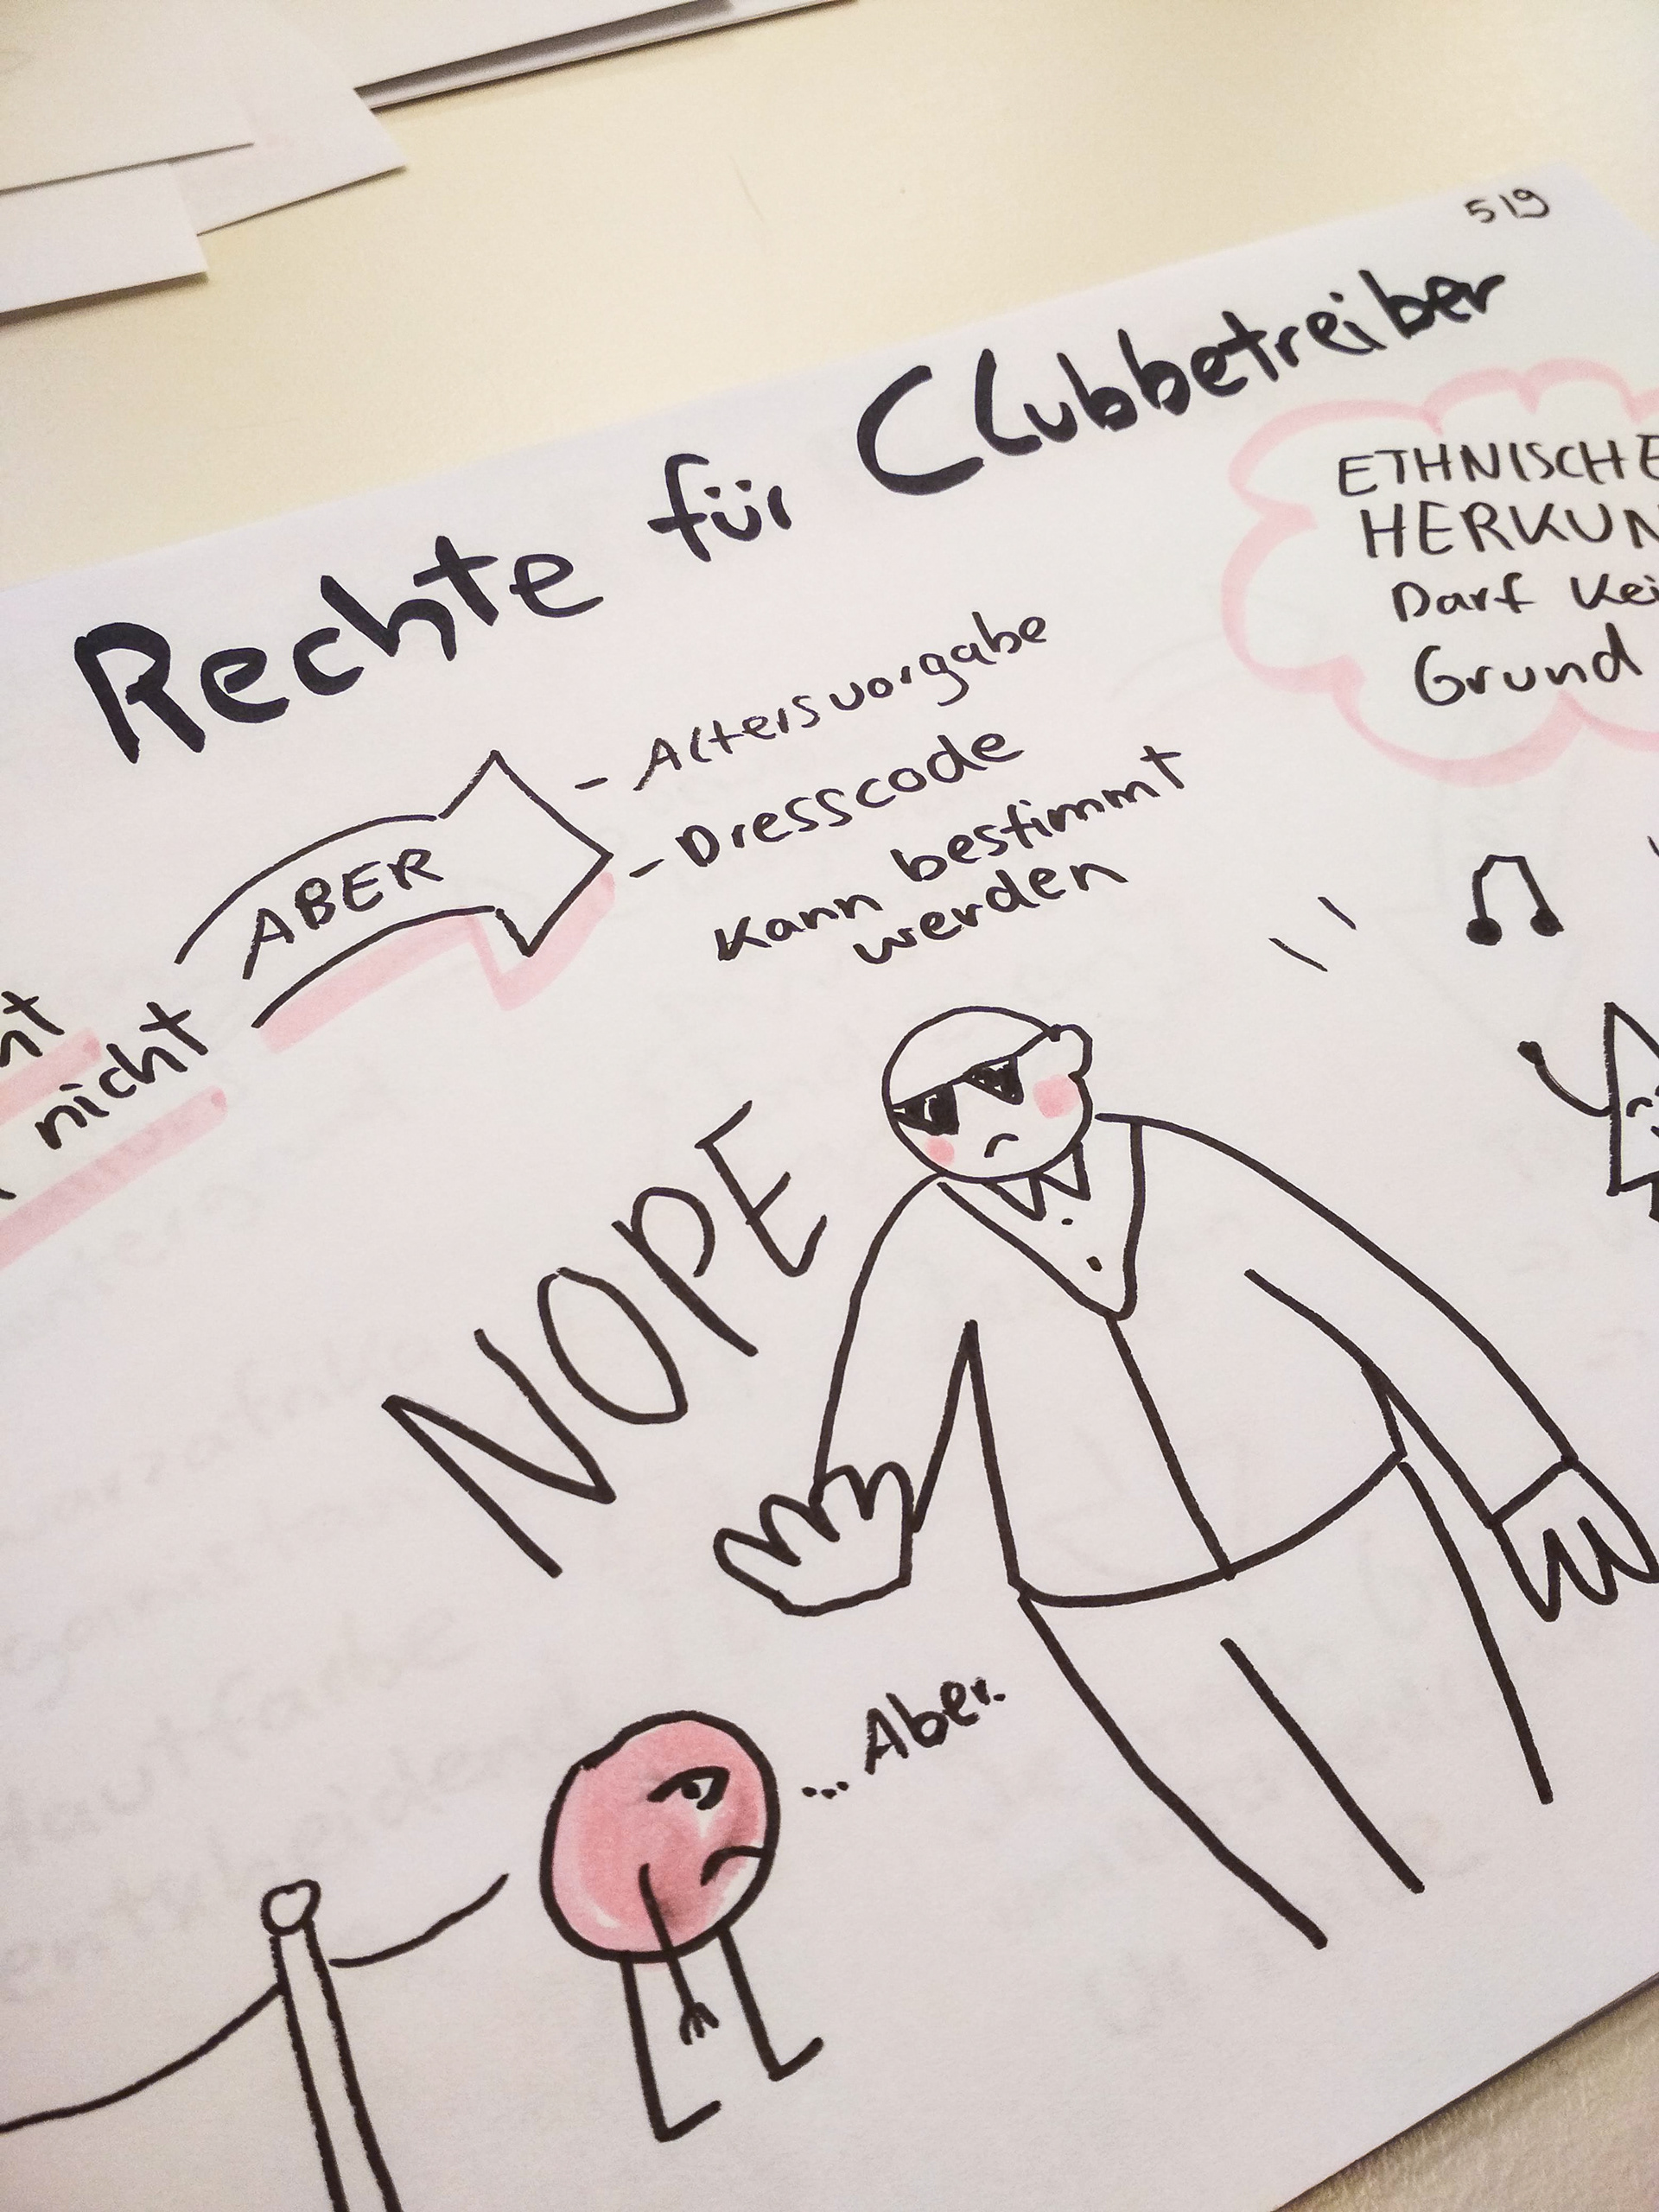 519
Rechte für Clubbetreiber
ETHNISCHE
HERKUN
Darf Kei
Grund
- Altersvorgabe
- Dresscode
Kann bestimmt
werden
ABER
nicht
NOPE
... Aber..